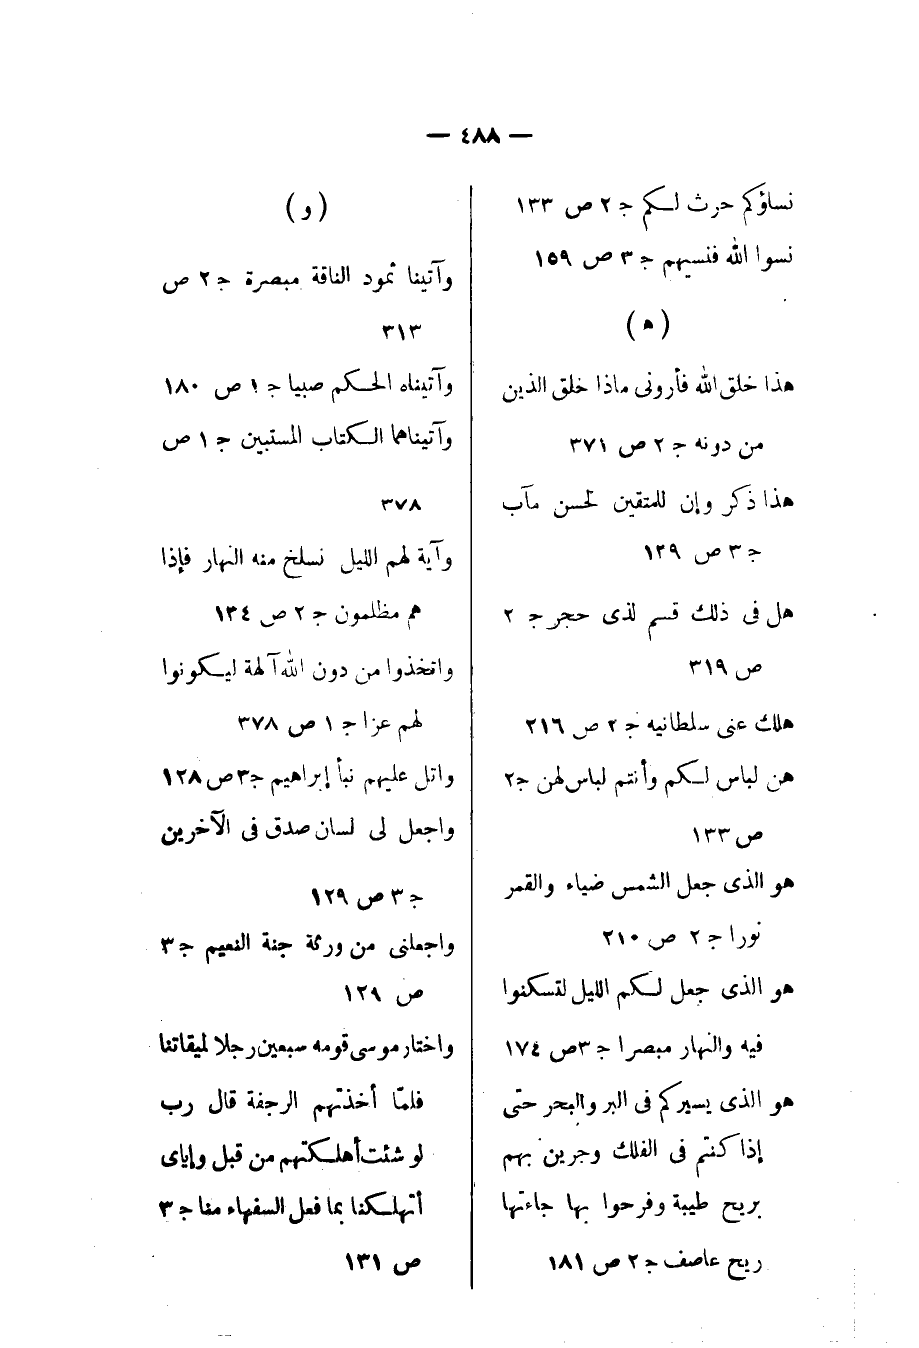 — ٤٨٨ —
نساؤكم حرث لكم ج ٢ ص ١٣٣
نسوا الله فنسيهم ج ٣ ص ١٥٩
(ه)
هذا خلق الله فأرونى ماذا خلق الذين
من دونه ج ٢ ص ٣٧١
هذا ذكر وإن للمتقين لحسن مآب
ج ٣ ص ١٢٩
هل فى ذلك قسم لذى حجر ج ٢
ص ٣١٩
هلك عنى سلطانيه ج ٢ ص ٢١٦
هن لباس لكم وأنتم لباس لهن ج ٢
ص ١٣٣
هو الذى جعل الشمس ضياء والقمر
نورا ج ٢ ص ٢١٠
هو الذى جعل لكم الليل لتسكنوا
فيه والنهار مبصرا ج ٣ ص ١٧٤
هو الذى يسيركم فى البر والبحر حتى
إذا كنتم فى الفلك وجرين بهم
بريح طيبة وفرحوا بها جاءتها
ريح عاصف ج ٢ ص ١٨١
(و)
وآتينا ثمود الناقة مبصرة ج ٢ ص
٣١٣
وآتيناه الحكم صبيا ج ١ ص ١٨٠
وآتيناهما الكتاب المستبين ج ١ ص
٣٧٨
وآية لهم الليل نسلخ منه النهار فإذا
هم مظلمون ج ٢ ص ١٣٤
واتخذوا من دون الله آلهة ليكونوا
لهم عزا ج ١ ص ٣٧٨
واتل عليهم نبأ إبراهيم ج ٣ ص ١٢٨
واجعل لى لسان صدق فى الآخرين
ج ٣ ص ١٢٩
واجعلنى من ورثة جنة النعيم ج ٣
ص ١٢٩
واختار موسى قومه سبعين رجلا لميقاتنا
فلمّا أخذتهم الرجفة قال رب
لو شئت أهلكتهم من قبل وإياى
أتهلكنا بما فعل السفهاء منا ج ٣
ص ١٣١